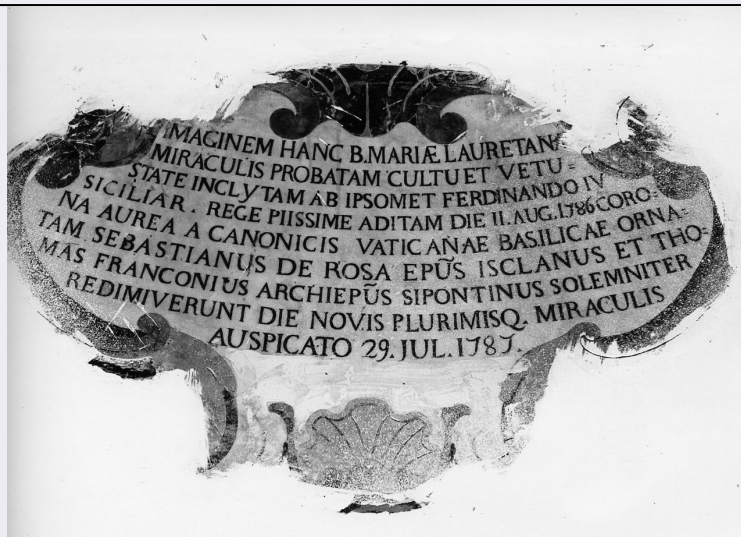 IMAGINEM HANC B. MARIÆ LAURETANÆ
MIRACULIS PROBATAM CULTU ET VETU-
STATE INCLYTAM AB IPSOMET FERDINANDO IV
SICILIAR. REGE PIISSIME ADITAM DIE II. AUG. 1786 CORO-
NA AUREA A CANONICIS VATICANAE BASILICAE ORNA-
TAM SEBASTIANUS DE ROSA EPŨS ISCLANUS ET THO-
MAS FRANCONIUS ARCHIEPŨS SIPONTINUS SOLEMNITER
REDIMIVERUNT DIE NOVIS PLURIMISQ. MIRACULIS
AUSPICATO 29. JUL. 1787.